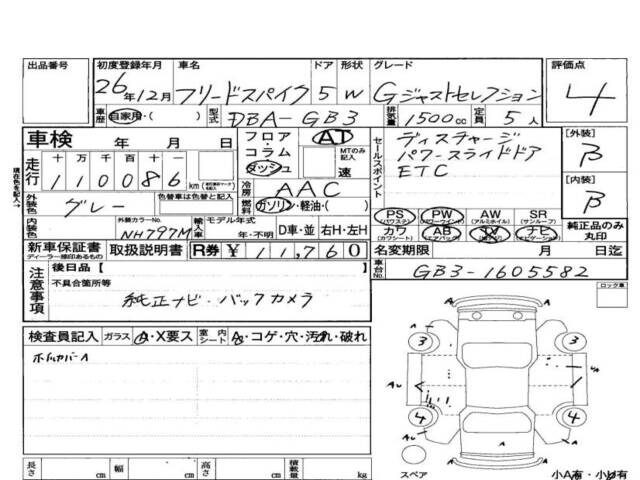 出品番号 初度登録年月 車名 ドア 形状 グレード 評価点
26年12月 フリードスパイク 5 W Gジャストセレクション 4
車歴 自家用・( ) 型式 DBA-GB3 排気量 1500cc 定員 5人
車検 年 月 日 フロア・コラム・ダッシュ AT MTのみ記入 速
走行 十 万 千 百 十 一
110086 km
冷房 AAC
セールスポイント ディスチャージ
パワースライドドア
ETC
[外装] β
[内装] β
外装色 グレー 色替車は色替と記入 燃料 ガソリン・軽油・( )
PS (パワステ) PW (パワーウインド) AW (アルミホイル) SR (サンルーフ)
カワ (カワシート) AB (エアバック) TV ナビ (ナビゲーション) 純正品のみ丸印
内装色 外装カラーNo. NH797M 輸入車 モデル年式 年・不明 D車・並 右H・左H
新車保証書 ディーラー捺印あるもの 取扱説明書 R券 ¥11,760 名変期限 月 日迄
注意事項 後日品 [ ] 車台No. GB3-1605582
不具合箇所等
純正ナビ・バックカメラ
ロック車
検査員記入 ガラス A・X要ス 室内シート A・コゲ・穴・汚れ・破れ
ホイルカバーA
A
3 3
A AU
4 4
A
長さ cm 幅 cm 高さ cm 積載量 kg
スペア 小A有・小U有